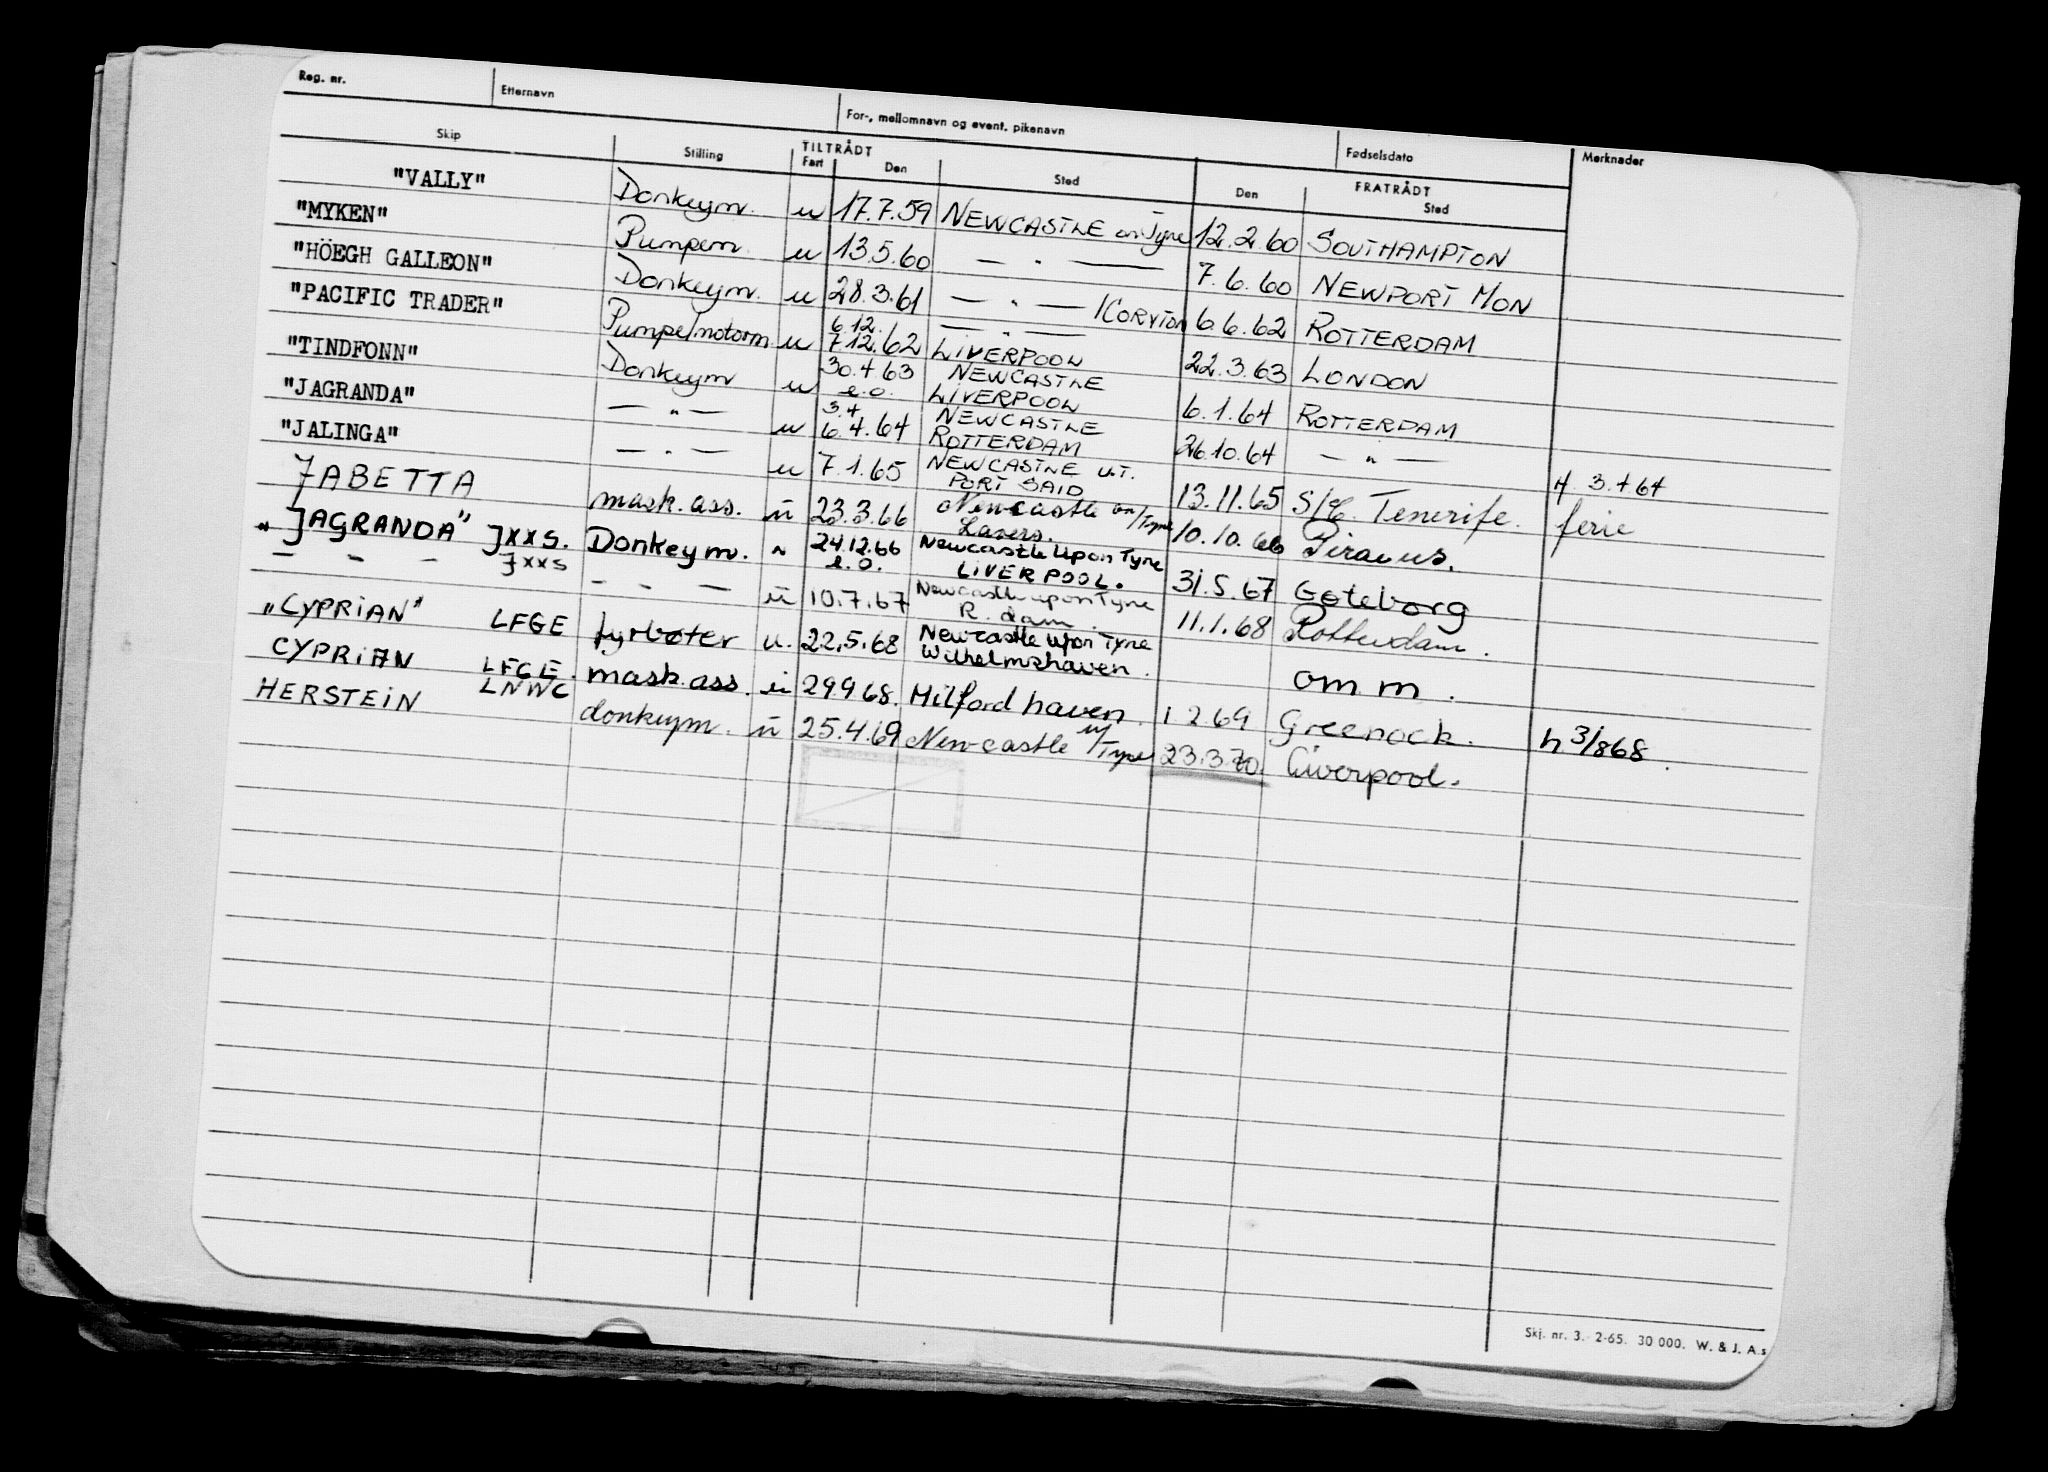 Reg. nr. Etternavn For-, mellomnavn og event. pikenavn Fødselsdato Merknader
Skip Stilling TILTRÅDT Fart Den Sted FRATRÅDT Den Sted
"VALLY" Donkeym. u 17.7.59 NEWCASTLE on Tyne 12.2.60 SOUTHAMPTON
"MYKEN" Pumpem. u 13.5.60 — " — 7.6.60 NEWPORT MON
"HÖEGH GALLEON" Donkeym. u 28.3.61 — " — /CORYTON 6.6.62 ROTTERDAM
"PACIFIC TRADER" Pumpe/motorm. u 6.12. — " —
7.12.62 LIVERPOOL 22.3.63 LONDON
"TINDFONN" Donkeym u 30.4.63 NEWCASTLE
e.o. LIVERPOOL 6.1.64 ROTTERDAM
"JAGRANDA" — " — u 3.4 NEWCASTLE
6.4.64 ROTTERDAM 26.10.64 — " — 3.4 64
"JALINGA" — " — u 7.1.65 NEWCASTLE U.T.
PORT SAID 13.11.65 S/C. Tenerife. ferie
JABETTA mask. ass. u 23.3.66 Newcastle on/Tyne
Lavera. 10.10.66 Piraeus.
"JAGRANDA" JXXS. Donkeym. " 24.12.66 Newcastle Upon Tyne
e.o. LIVERPOOL. 31.5.67 Gøteborg
— — — JXXS — — — u 10.7.67 Newcastle upon Tyne
R. dam. 11.1.68 Rotterdam.
"CYPRIAN" LFGE fyrbøter u. 22.5.68 Newcastle upon Tyne
Wilhelmshaven. om m.
CYPRIAN LFGE. mask. ass. u 29.9 68. Milford haven. 1 2.69 Greenock. h 3/8 68.
HERSTEIN LNWC donkeym. u 25.4.69 Newcastle u/Tyne 23.3.70. Liverpool.
Skj. nr. 3. 2-65. 30 000. W. & J. A.s